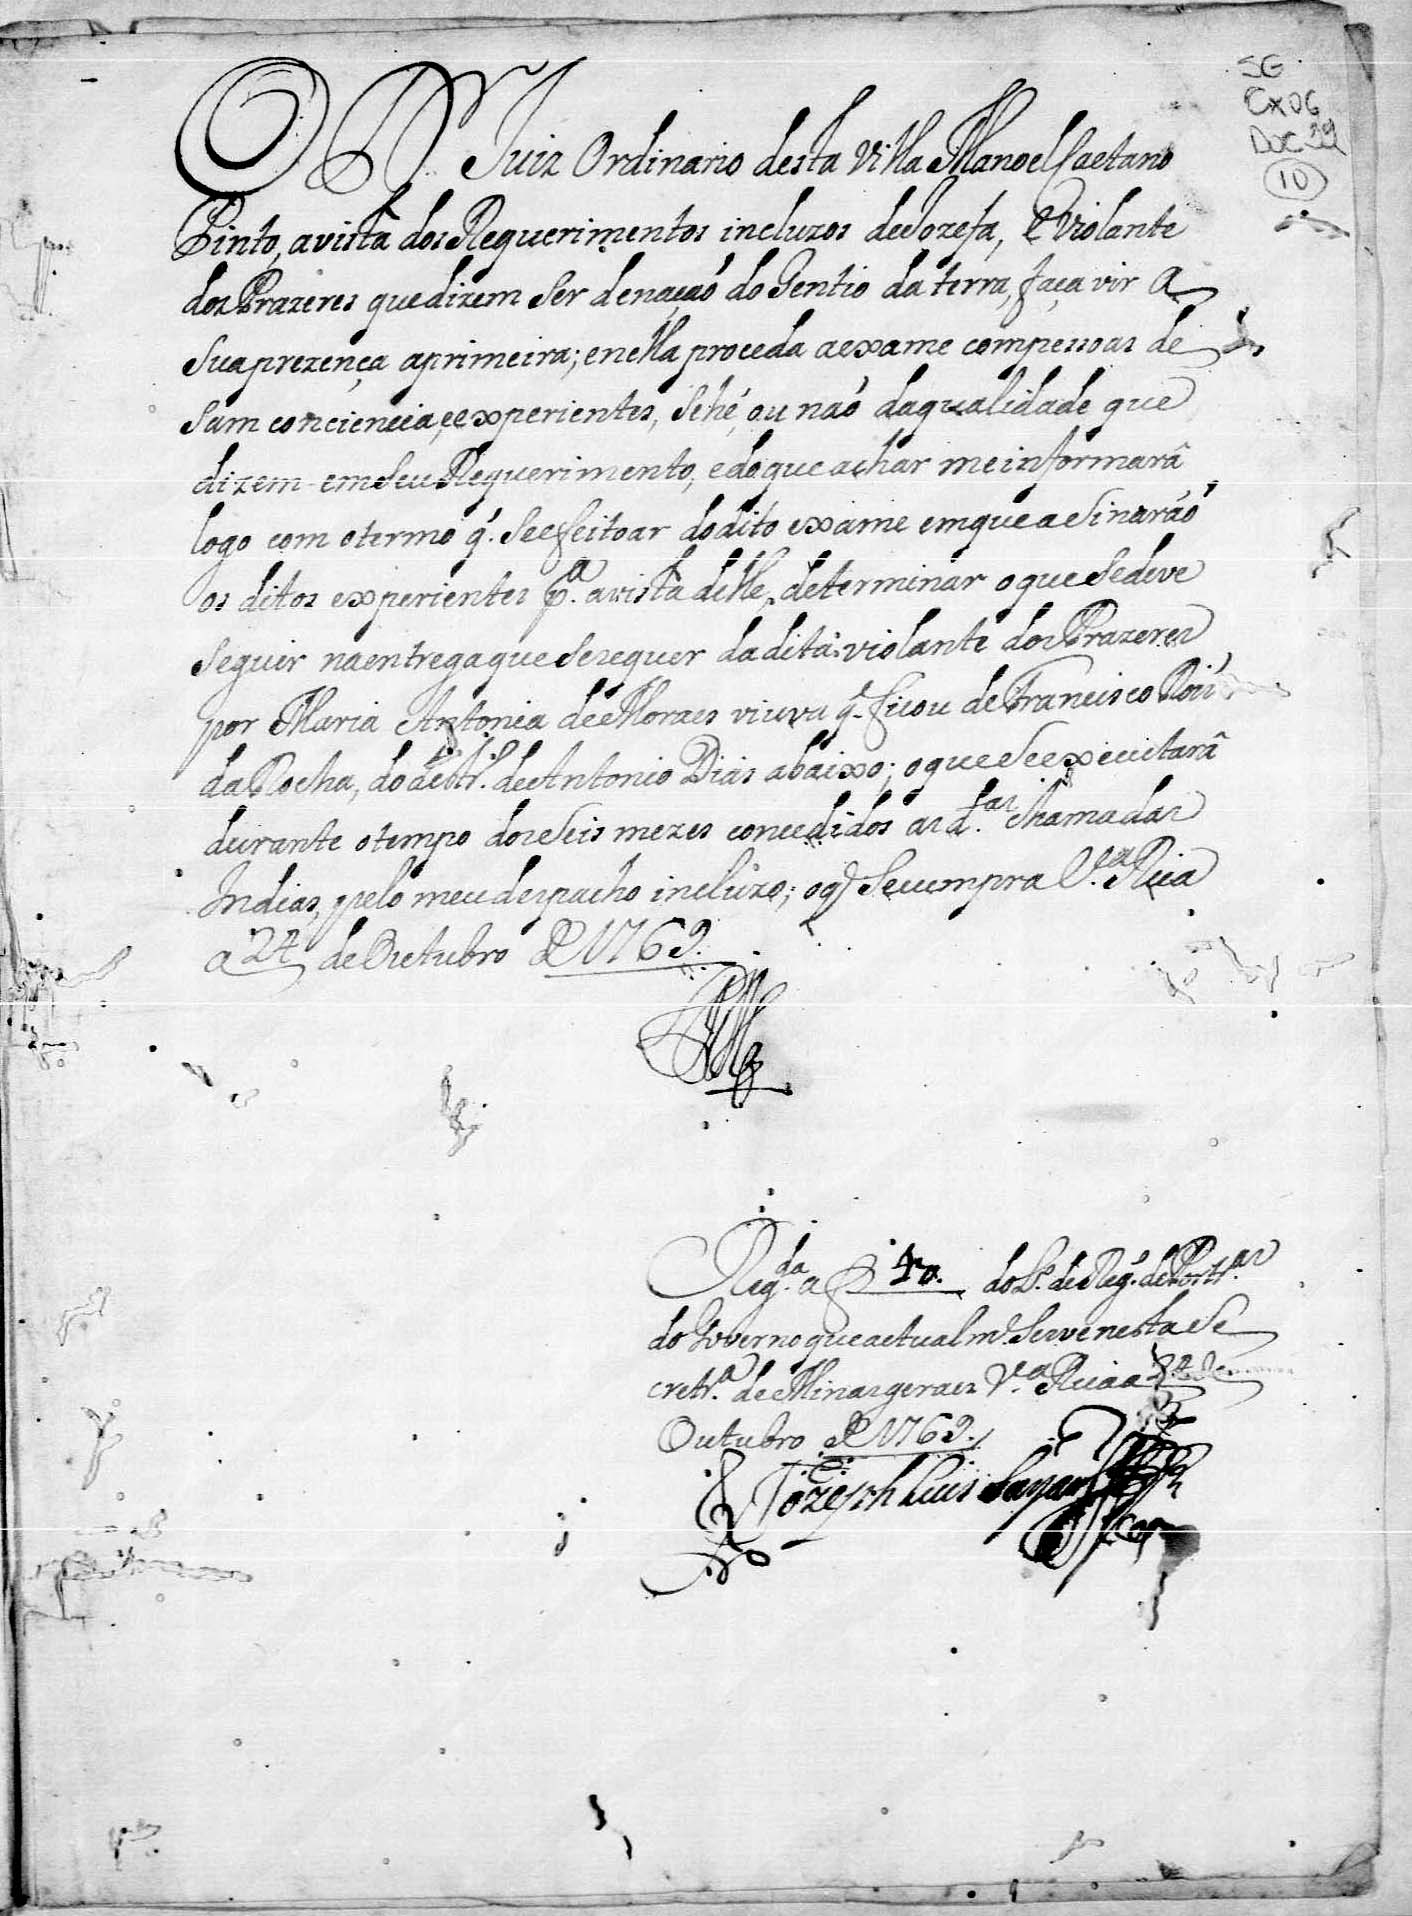 SG
CX06
DOC 29
10
O D.r Juiz Ordinario desta Villa Manoel Caetano
Pinto, avista dos Requerimentos incluzos de Jozefa, e Violante
dos Prazeres que dizem ser denação do Gentio da terra, faça vir a
sua prezença aprimeira; e nella proceda a exame com pessoas de
sam conciencia, e experientes, se hé, ou não daqualidade que
dizem em seu Requerimento, e do que achar me informarâ
logo com o termo q. se efeitoar do dito exame em que asinarão
os ditos experientes p.a avista delle determinar o que se deve
seguir na entrega que se requer da dita violante dos Prazeres
por Maria Antonia de Moraes viuva q. ficou de Francisco Roiz
da Rocha, do destr.o de Antonio Dias abaixo; o que se executarâ
durante o tempo dos seis mezes concedidos as d.as chamadas
Indias, pelo meu despacho incluzo; o q se cumpra V.a Rica
a 24 de Outubro de 1769.
Reg.da a f do L.o de Reg.o de Portr.as
do Governo que actualm.e serve nesta Se
cretr.a de Minas geraes V.a Rica a 24 de
Outubro de 1769.
Jozeph Luis Sayam